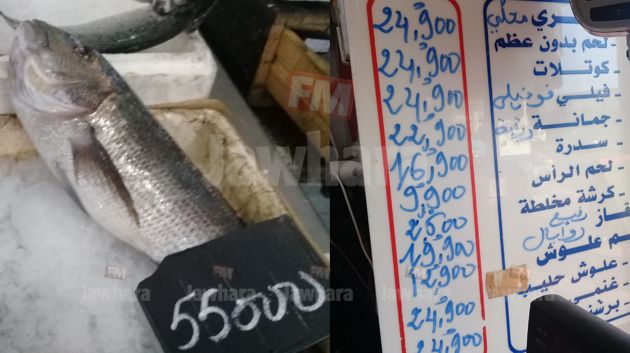 55000
24,900
24,900
24,900
22,900
16,900
9,900
19,900
24,900
24,900
ـري محلي
- لحم بدون عظم
- كوتلات
- فيلي
- جمانة
- سدرة
لحم الرأس
- كرشة مخلطة
ـم علوش
- علوش حليب
- غنمي
FM
Jawhara
FM
Jawhara
FM
Jawhara
FM
Jawhara